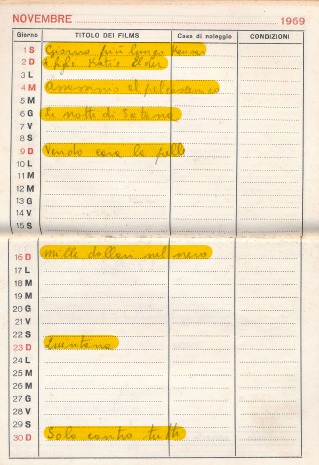 NOVEMBRE 1969
Giorno TITOLO DEI FILMS Casa di noleggio CONDIZIONI
1 S Giorno più lungo
2 D figli Katie Elder
3 L
4 M Assassino al
5 M
6 G Le notti di Satana
7 V
8 S
9 D Vendo cara la pelle
10 L
11 M
12 M
13 G
14 V
15 S
16 D Mille dollari sul nero
17 L
18 M
19 M
20 G
21 V
22 S
23 D Quintana
24 L
25 M
26 M
27 G
28 V
29 S
30 D Solo contro tutti